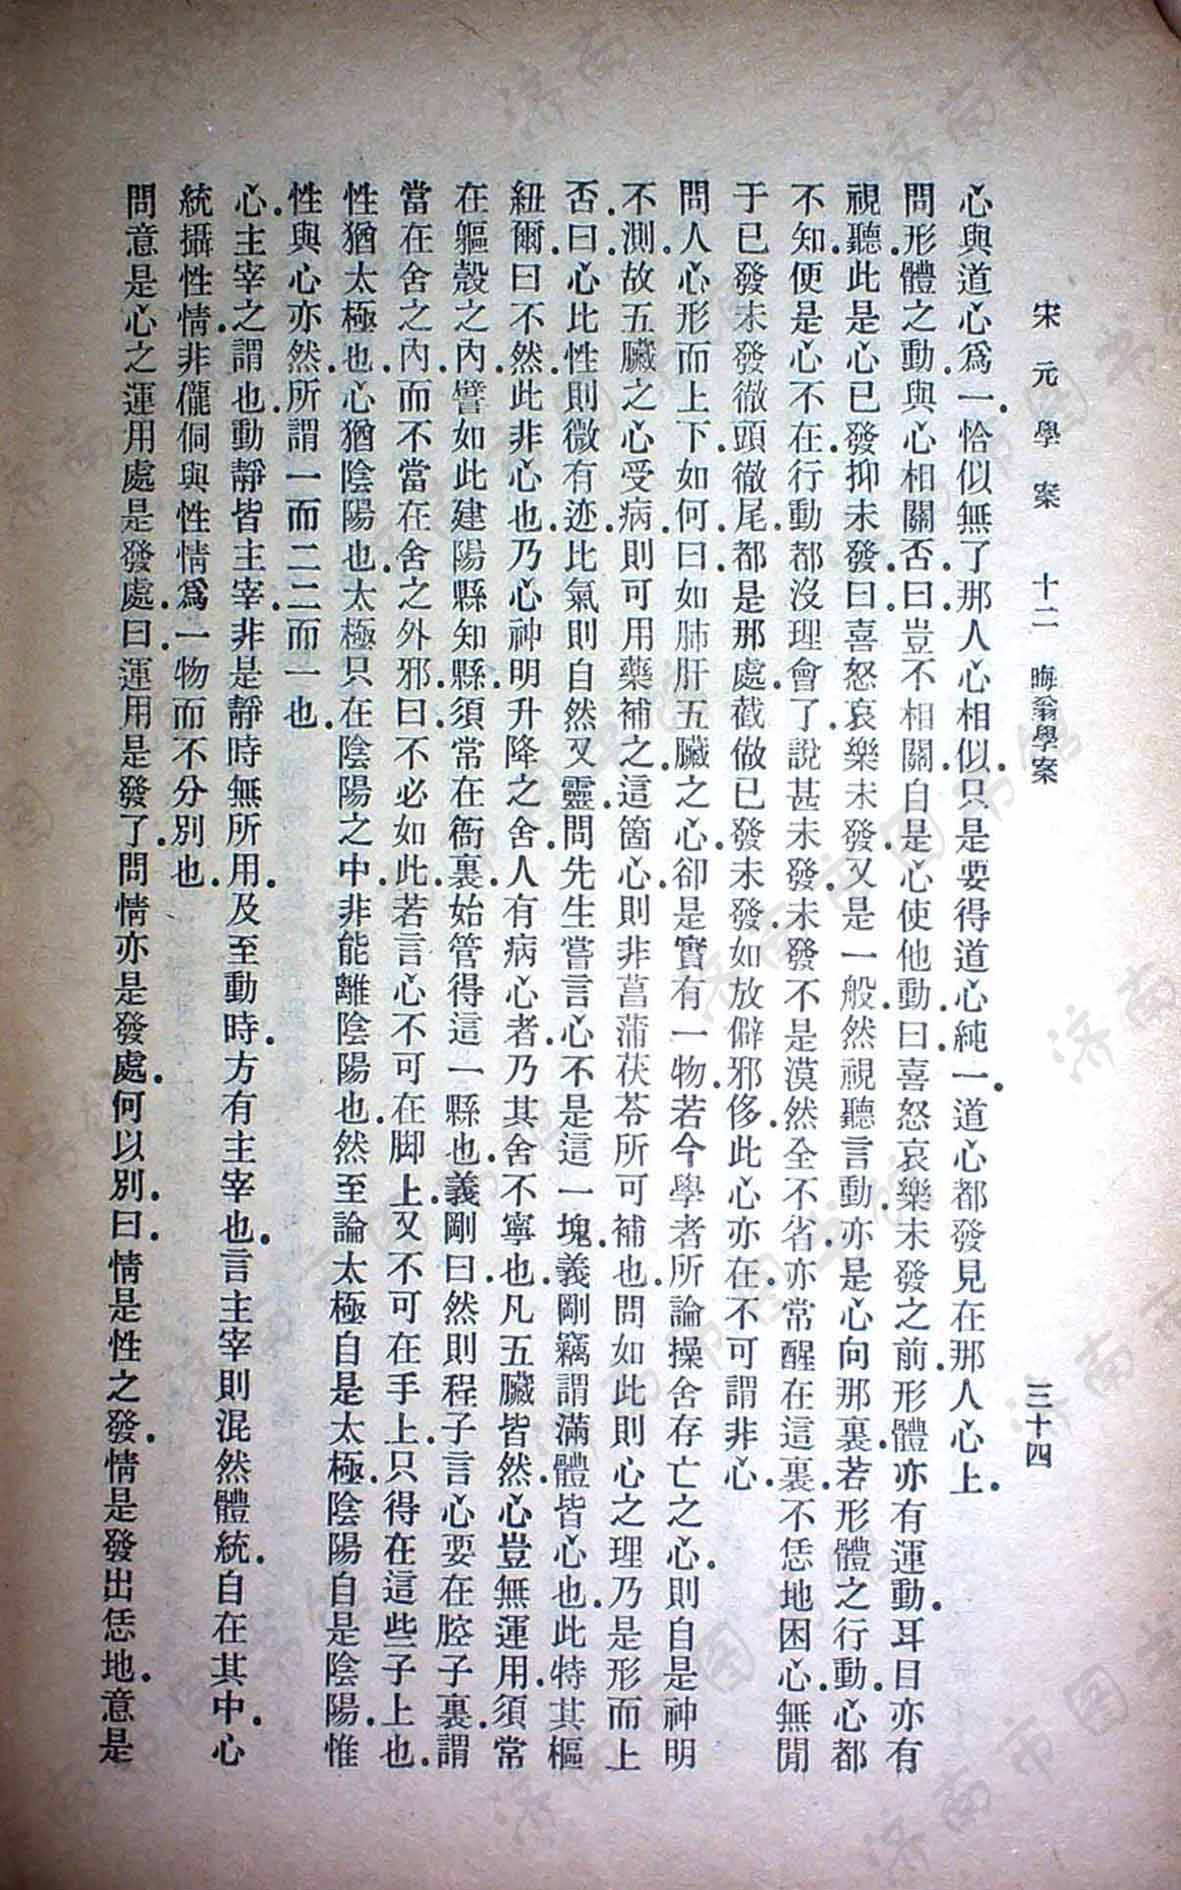 宋元學案 十二 晦翁學案 三十四
心與道心爲一.恰似無了那人心相似.只是要得道心純一.道心都發見在那人心上.
問.形體之動與心相關否.曰.豈不相關.自是心使他動.曰喜怒哀樂未發之前.形體亦有運動.耳目亦有
視聽.此是心已發.抑未發.曰.喜怒哀樂未發.又是一般.然視聽言動.亦是心向那裏.若形體之行動.心都
不知.便是心不在.行動都沒理會了.說甚未發.未發不是漠然全不省.亦常醒在這裏.不恁地困.心無閒
于已發未發.徹頭徹尾.都是那處截做已發未發.如放僻邪侈.此心亦在.不可謂非心.
問.人心形而上下.如何.曰如肺肝五臟之心.卻是實有一物.若今學者所論操舍存亡之心.則自是神明
不測.故五臟之心受病.則可用藥補之.這箇心.則非菖蒲茯苓所可補也.問如此則心之理.乃是形而上
否.曰.心比性則微有迹.比氣則自然又靈.問.先生嘗言.心不是這一塊.義剛竊謂滿體皆心也.此特其樞
紐爾.曰不然.此非心也.乃心神明升降之舍.人有病心者.乃其舍不寧也.凡五臟皆然.心豈無運用.須常
在軀殼之內.譬如此建陽縣知縣.須常在衙裏.始管得這一縣也.義剛曰.然則程子言心要在腔子裏.謂
當在舍之內.而不當在舍之外邪.曰.不必如此.若言心不可在脚上.又不可在手上.只得在這些子上也.
性猶太極也.心猶陰陽也.太極只在陰陽之中.非能離陰陽也.然至論太極自是太極.陰陽自是陰陽.惟
性與心亦然.所謂一而二.二而一也.
心.主宰之謂也.動靜皆主宰.非是靜時無所用.及至動時.方有主宰也.言主宰則混然體統.自在其中.心
統攝性情.非儱侗與性情爲一物而不分別也.
問意是心之運用處.是發處.曰.運用是發了.問情亦是發處.何以別.曰.情是性之發.情是發出恁地.意是